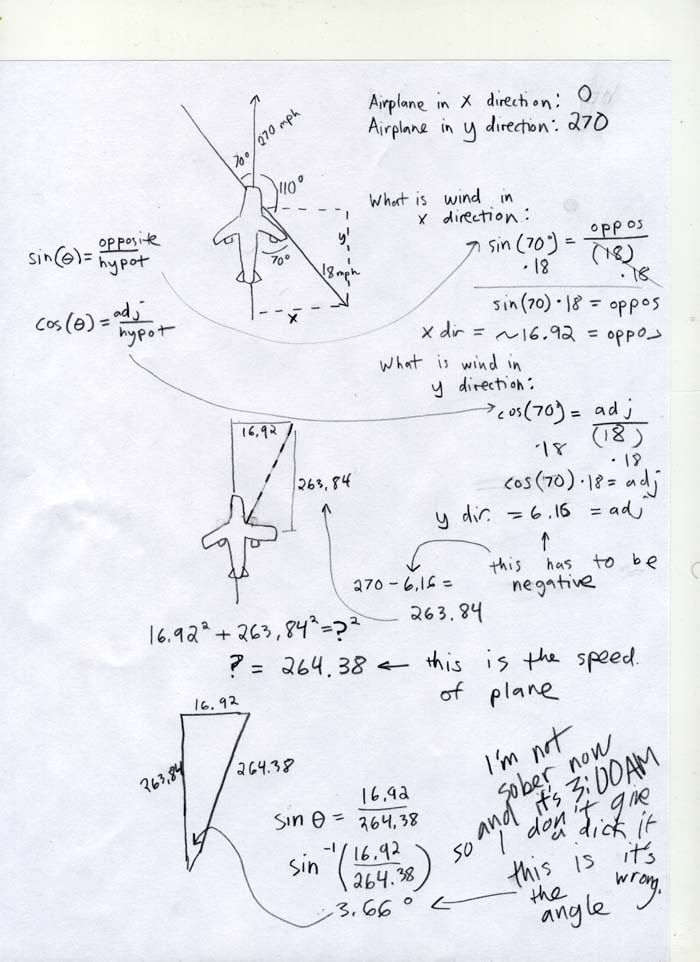 Airplane in x direction: 0
Airplane in y direction: 270
270 mph
70°
110°
y
70°
18 mph
x
sin(θ) = opposite/hypot
cos(θ) = adj/hypot
What is wind in
x direction:
sin(70°) = oppos/(18)
·18 ·18
sin(70)·18 = oppos
x dir = ~16.92 = oppos
What is wind in
y direction:
cos(70°) = adj/(18)
·18 ·18
cos(70)·18 = adj
y dir. = 6.16 = adj
this has to be
negative
16.92
263.84
270 - 6.16 =
263.84
16.92² + 263.84² = ?²
? = 264.38 ← this is the speed
of plane
16.92
263.84
264.38
sin θ = 16.92/264.38
sin⁻¹(16.92/264.38)
3.66° ← this is
the
angle
I'm not
sober now
and it's 3:00AM
so I don't give
a dick if
it's
wrong.